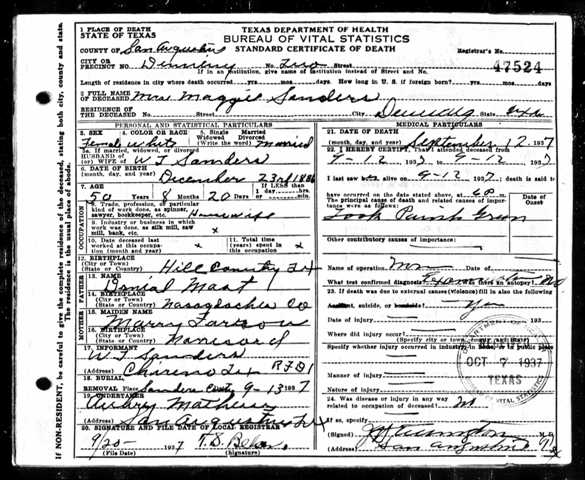 1 PLACE OF DEATH
STATE OF TEXAS
TEXAS DEPARTMENT OF HEALTH
BUREAU OF VITAL STATISTICS
STANDARD CERTIFICATE OF DEATH
COUNTY OF San Augustine
Registrar's No.
CITY OR PRECINCT NO. Denning No. Two
47524
If in an institution, give name of institution instead of Street and No.
Length of residence in city where death occurred yrs. mos. days. How long in U. S. if foreign born? yrs. mos. days
2 FULL NAME OF DECEASED Mrs Maggie Sanders
RESIDENCE OF THE DECEASED Street and No. City, Denning State
PERSONAL AND STATISTICAL PARTICULARS
MEDICAL PARTICULARS
3. SEX Female
4. COLOR OR RACE White
5. Single Married Widowed Divorced (Write the word) Married
5a. If married, widowed, or divorced
HUSBAND OF (or) WIFE OF W T Sanders
6. DATE OF BIRTH (month, day, and year) December 23rd 1886
7. AGE 50 Years 8 Months 20 Days If LESS than 1 day hrs. min.
OCCUPATION
8. Trade, profession, or particular kind of work done, as spinner, sawyer, bookkeeper, etc. Housewife
9. Industry or business in which work was done, as silk mill, saw mill, bank, etc. x
10. Date deceased last worked at this occupation (month and year) x
11. Total time (years) spent in this occupation x
12. BIRTHPLACE (City or Town) (State or Country) Hill County Tx
FATHER
13. NAME Daniel Mast
14. BIRTHPLACE (City or Town) (State or Country) Nacogdoches Co
MOTHER
15. MAIDEN NAME
16. BIRTHPLACE (City or Town) (State or Country)
17. INFORMANT W T Sanders
(Address) Chireno Tx RFD 1
18. BURIAL, REMOVAL Place Sanders Date 9-13 1937
19. UNDERTAKER
(Address) San Augustine Tx
20. SIGNATURE AND FILE DATE OF LOCAL REGISTRAR
9/20 - 1937
(File Date) (Signature)
21. DATE OF DEATH
(month, day, and year) September 12 1937
22. I HEREBY CERTIFY, that I attended deceased from
9-12 1937 to 9-12 1937
I last saw alive on 9-12 1937 death is said to
have occurred on the date stated above, at
The principal cause of death and related causes of importance were as follows:
Date of Onset
Took Parish Green
Other contributory causes of importance:
Name of operation
What test confirmed diagnosis? Was there an autopsy? No
23. If death was due to external causes (violence) fill in also the following
Accident, suicide, or homicide? Yes
Date of injury 193
Where did injury occur?
(Specify city or town, county, and State)
Specify whether injury occurred in industry, in home, or in public place
Manner of injury
Nature of injury
OCT 7 1937
TEXAS
24. Was disease or injury in any way related to occupation of deceased? No
If so, specify
(Signed) M. D.
(Address) San Augustine Tx
IF NON-RESIDENT, be careful to give the complete residence of the deceased, stating both city, county and state. The residence is the usual place of abode.